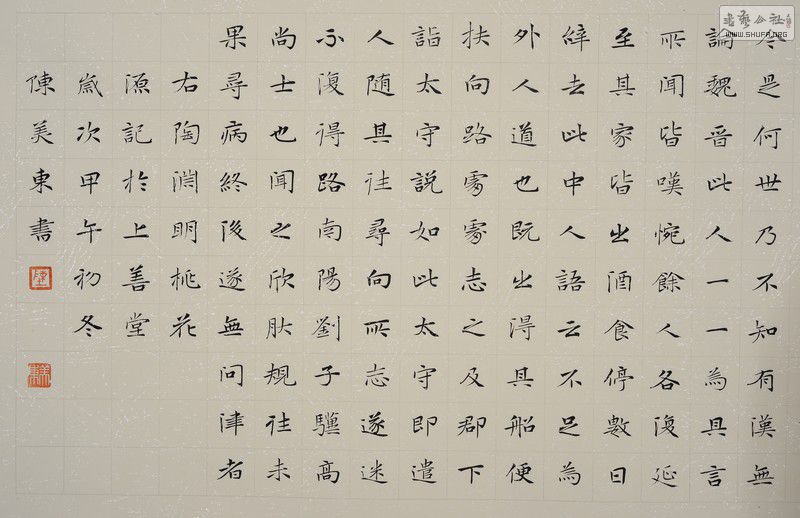 今是何世乃不知有漢無
論魏晉此人一一為具言
所聞皆嘆惋餘人各復延
至其家皆出酒食停數日
辭去此中人語云不足為
外人道也既出得其船便
扶向路處處志之及郡下
詣太守說如此太守即遣
人随其往尋向所志遂迷
不復得路南陽劉子驥高
尚士也聞之欣肰規往未
果尋病終後遂無問津者
右陶淵明桃花
源記於上善堂
歲次甲午初冬
陳美東書
書藝公社
WWW.SHUFA.ORG